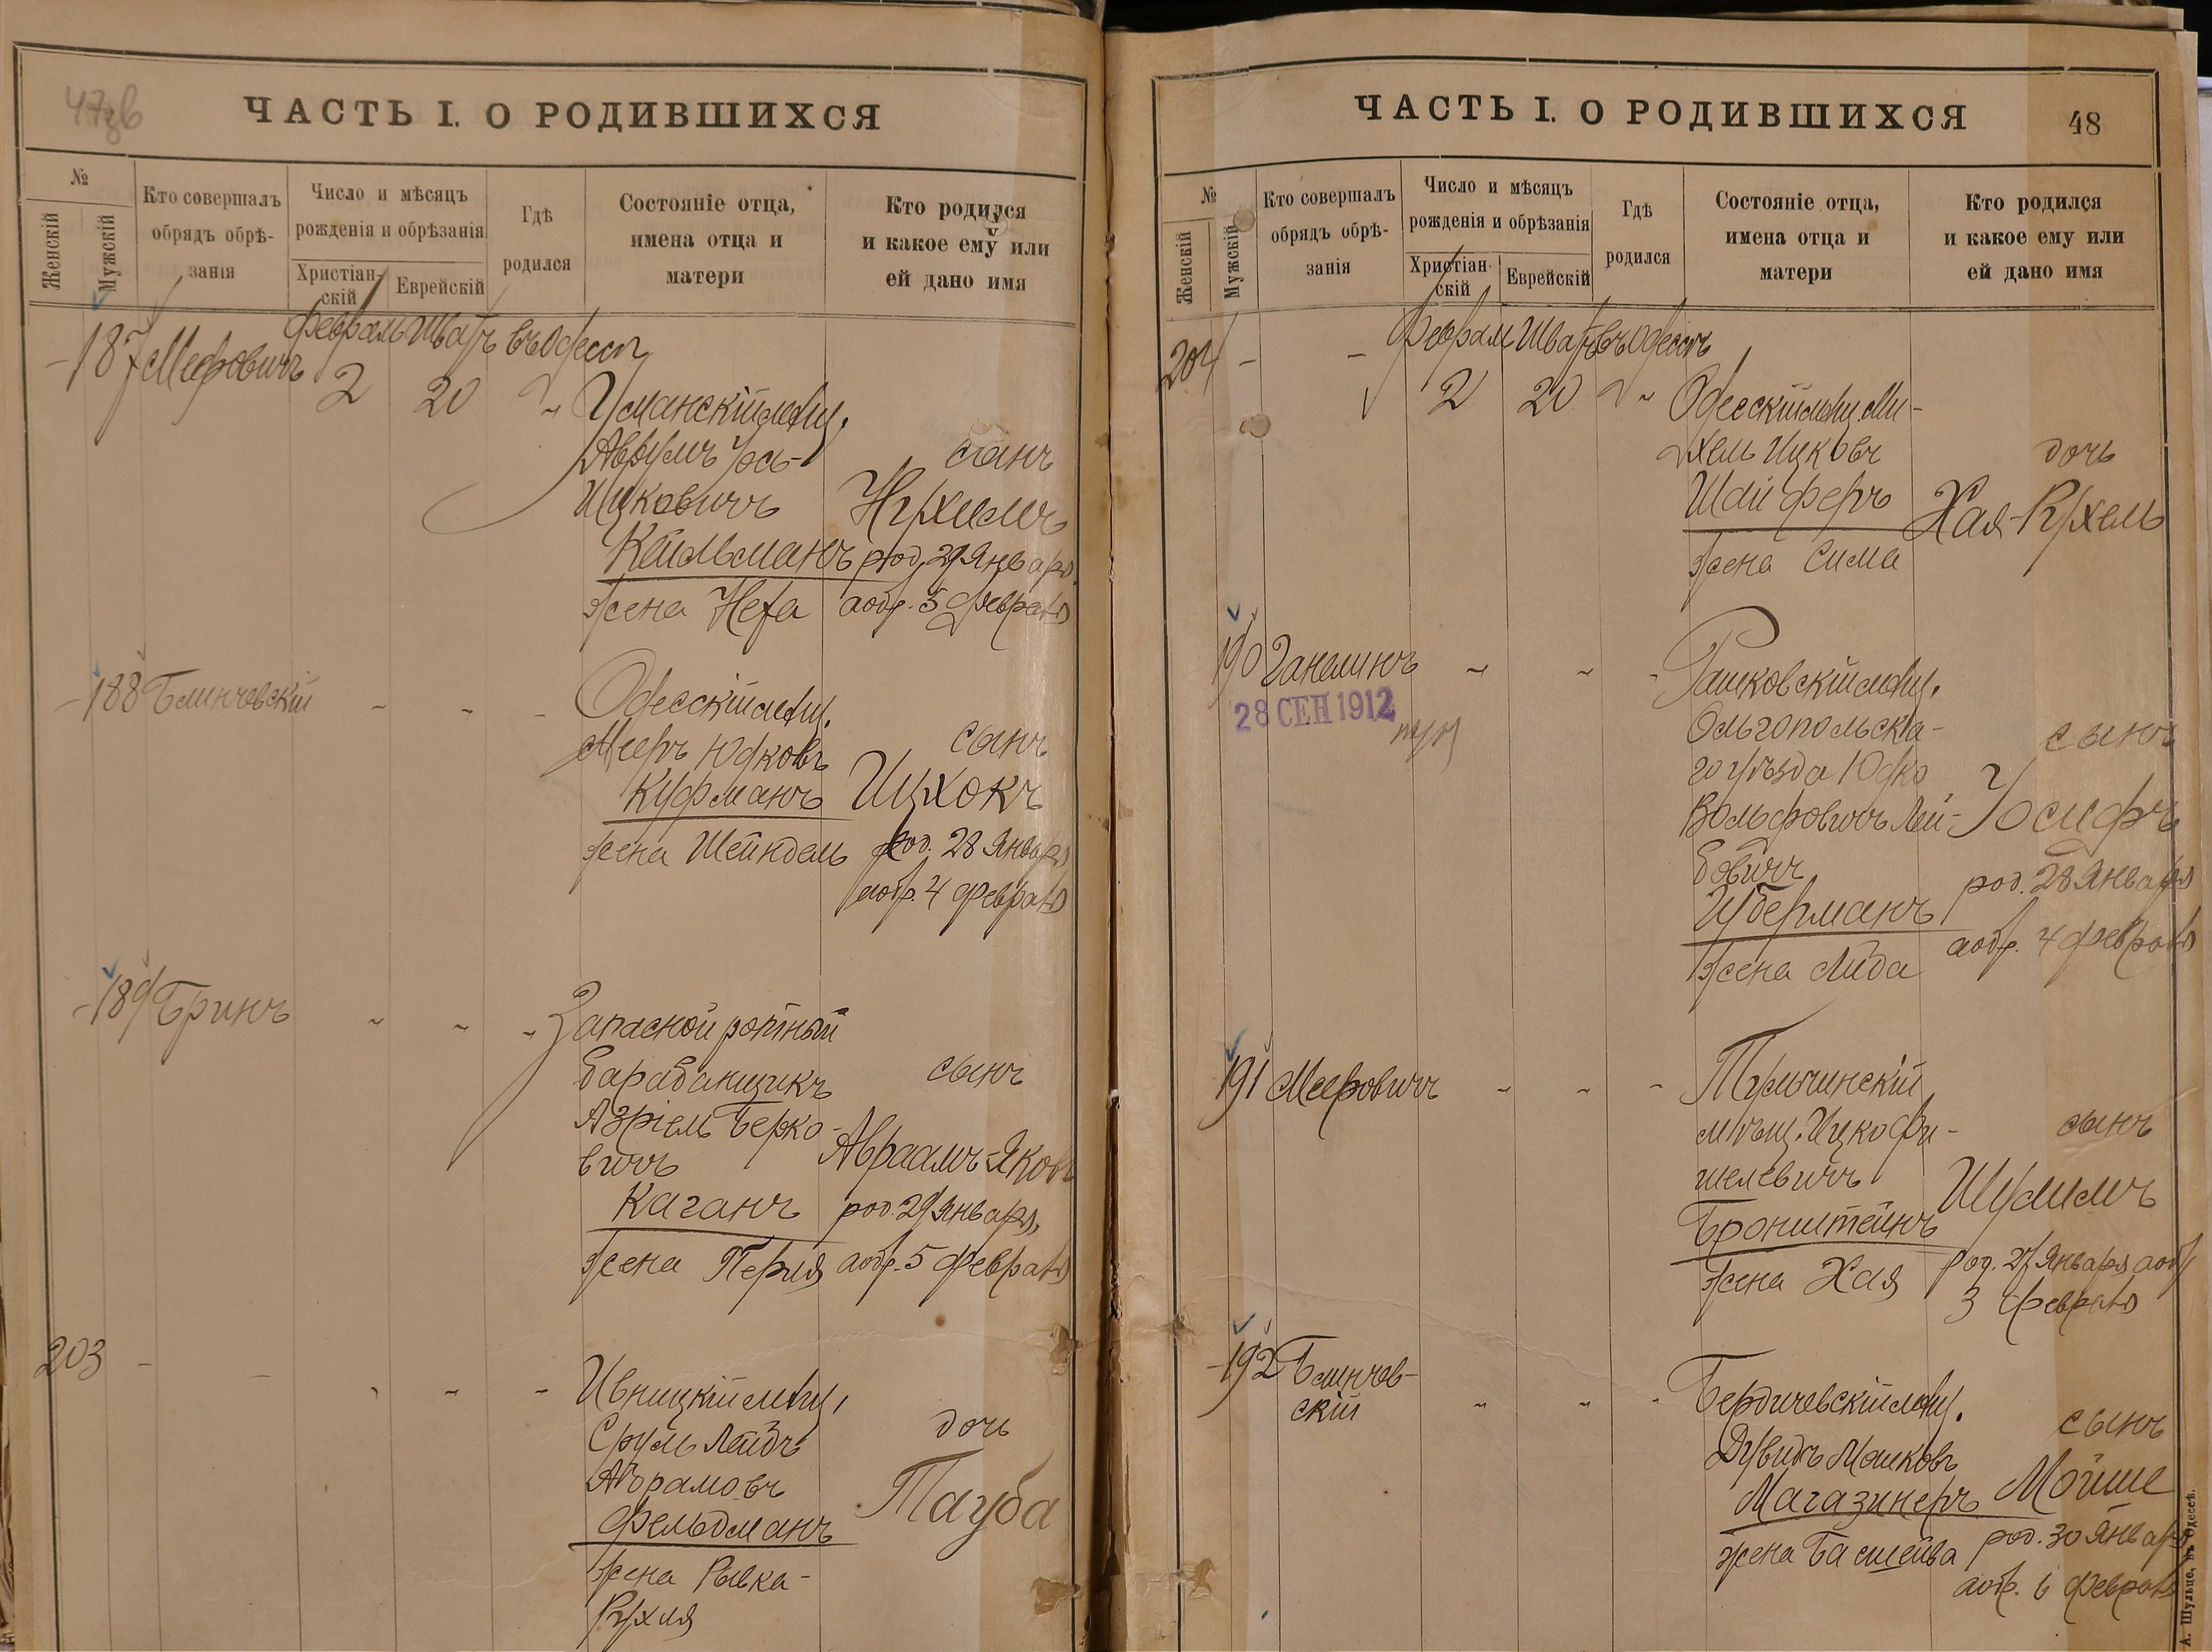 47зв
ЧАСТЬ I. О РОДИВШИХСЯ
№
Женскій
Мужскій
Кто совершалъ
обрядъ обрѣ-
занія
Число и мѣсяцъ
рожденія и обрѣзанія
Христіан-
скій
Еврейскій
Гдѣ
родился
Состояніе отца,
имена отца и
матери
Кто родился
и какое ему или
ей дано имя
Февраль Шватъ въ Одессѣ
187 Меровичъ 2 20 Уманскій мѣщ.
Аврумъ Іось-
Ицковичъ
Кейльманъ
жена Неха
сынъ
Нухимъ
род. 29 Января
а обр. 5 февраля
188 Блинчевскій
Одесскій мѣщ.
Мееръ Юдковъ
Куфманъ
жена Шейндель
сынъ
Ицхокъ
род. 28 Января
а обр. 4 февраля
189 Бринъ
Запасной ротный
барабанщикъ
Азріель Берко-
вичъ
Каганъ
жена Перля
сынъ
Авраамъ-Яковъ
род. 29 Января,
а обр. 5 февраля
203
Ивницкій мѣщ.
Сруль Лейбъ
Абрамовъ
Фельдманъ
жена Рывка-
Рухля
дочь
Тауба
ЧАСТЬ I. О РОДИВШИХСЯ
48
№
Женскій
Мужскій
Кто совершалъ
обрядъ обрѣ-
занія
Число и мѣсяцъ
рожденія и обрѣзанія
Христіан-
скій
Еврейскій
Гдѣ
родился
Состояніе отца,
имена отца и
матери
Кто родился
и какое ему или
ей дано имя
Февраль Шватъ въ Одессѣ
204 2 20 Одесскій мѣщ. Ми-
хель Ицковъ
Шайферъ
жена Сима
дочь
Хая-Рухель
190 Ганелинъ
28 СЕН 1912
Рашковскій мѣщ.
Ольгопольска-
го уѣзда Юдко
Вольфовичъ Лей-
бовичъ
Губерманъ
жена Либа
сынъ
Іосифъ
род. 28 Января
а обр. 4 февраля
191 Меровичъ
Тульчинскій
мѣщ. Ицко Фи-
шелевичъ
Бронштейнъ
жена Хая
сынъ
Шулимъ
род. 27 Января, а обр.
3 февраля
192 Блинчев-
скій
Бердичевскій мѣщ.
Дувидъ Мошковъ
Магазинеръ
жена Басшейва
сынъ
Мойше
род. 30 Января
а обр. 6 февраля
А. Шульце, въ Одессѣ.